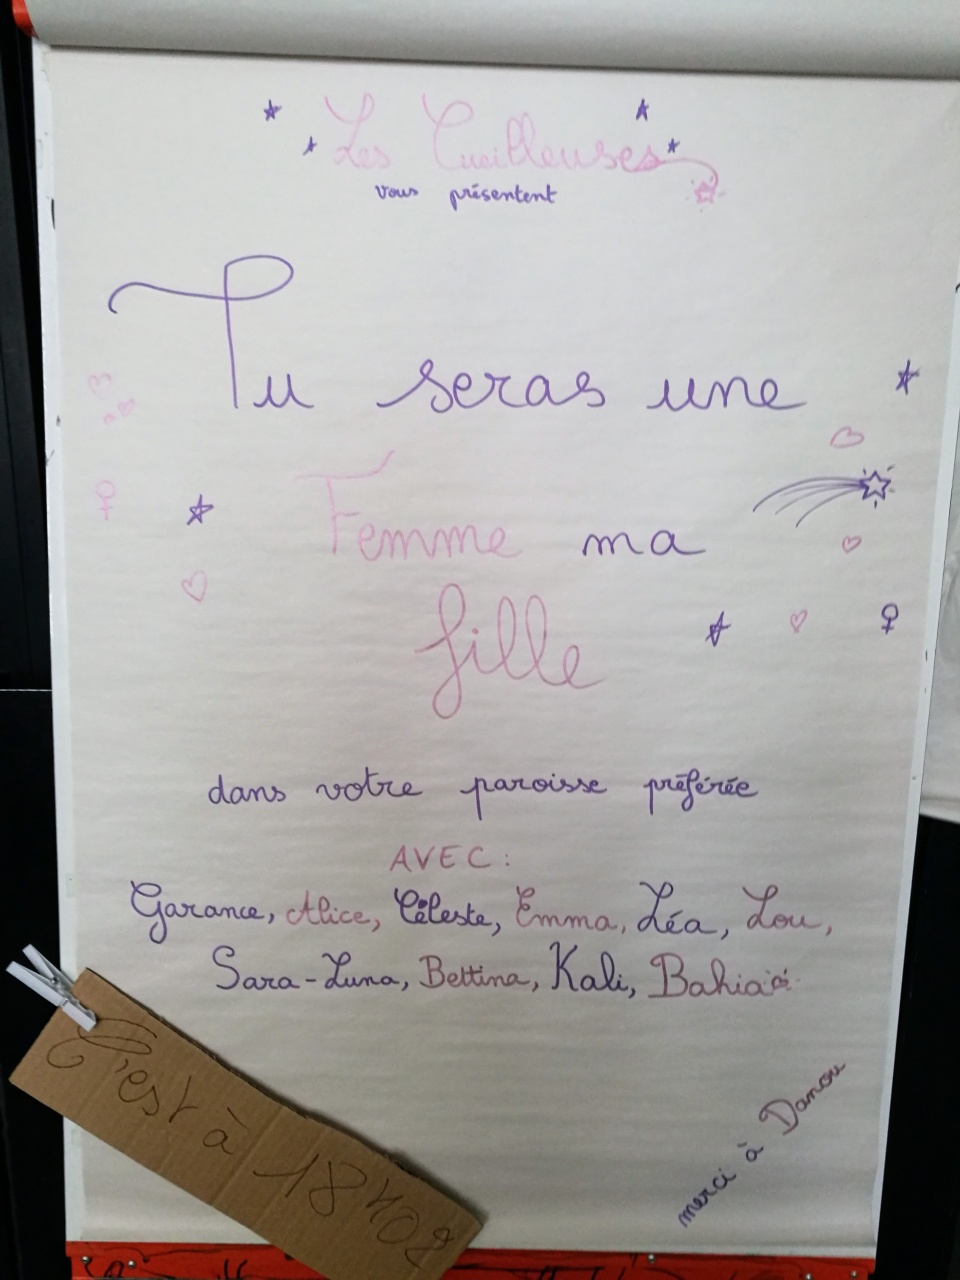 Les Cueilleuses
vous présentent
Tu seras une
Femme ma
fille
dans votre paroisse préférée
AVEC :
Garance, Alice, Céleste, Emma, Léa, Lou,
Sara-Luna, Bettina, Kali, Bahia
merci à Danou
C'est à 18h02